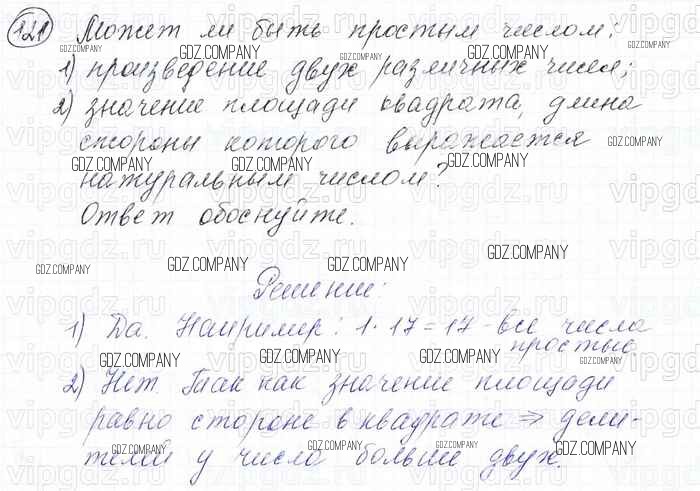 121 Может ли быть простым числом:
1) произведение двух различных чисел;
2) значение площади квадрата, длина
стороны которого выражается
натуральным числом?
Ответ обоснуйте.
Решение:
1) Да. Например: 1·17=17 - все числа
простые.
2) Нет. Так как значение площади
равно стороне в квадрате ⇒ дели-
телей у числа больше двух.
GDZ.COMPANY
vipgdz.ru